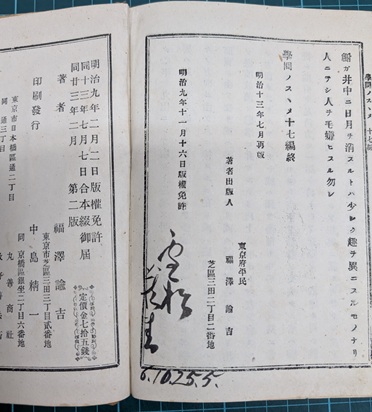 學問ノスヽメ 十七編
人ニシテ人ヲ毛嫌ヒスル勿レ
學問ノスヽメ十七編終
明治十三年七月再版
著者出版人
東京府平民
福澤諭吉
芝區三田二丁目二番地
明治九年十一月十六日版權免許
6.10.25.5.
明治九年二月二日版權免許
同十三年七月七日合本綴御届
同廿三年二月 第二版
著者 福澤諭吉
東京市芝區三田二丁目貳番地
定價金七拾五錢
印刷發行 中島精一
同 京橋區銀坐二丁目六番地
東京市日本橋區通三丁目
丸善商社